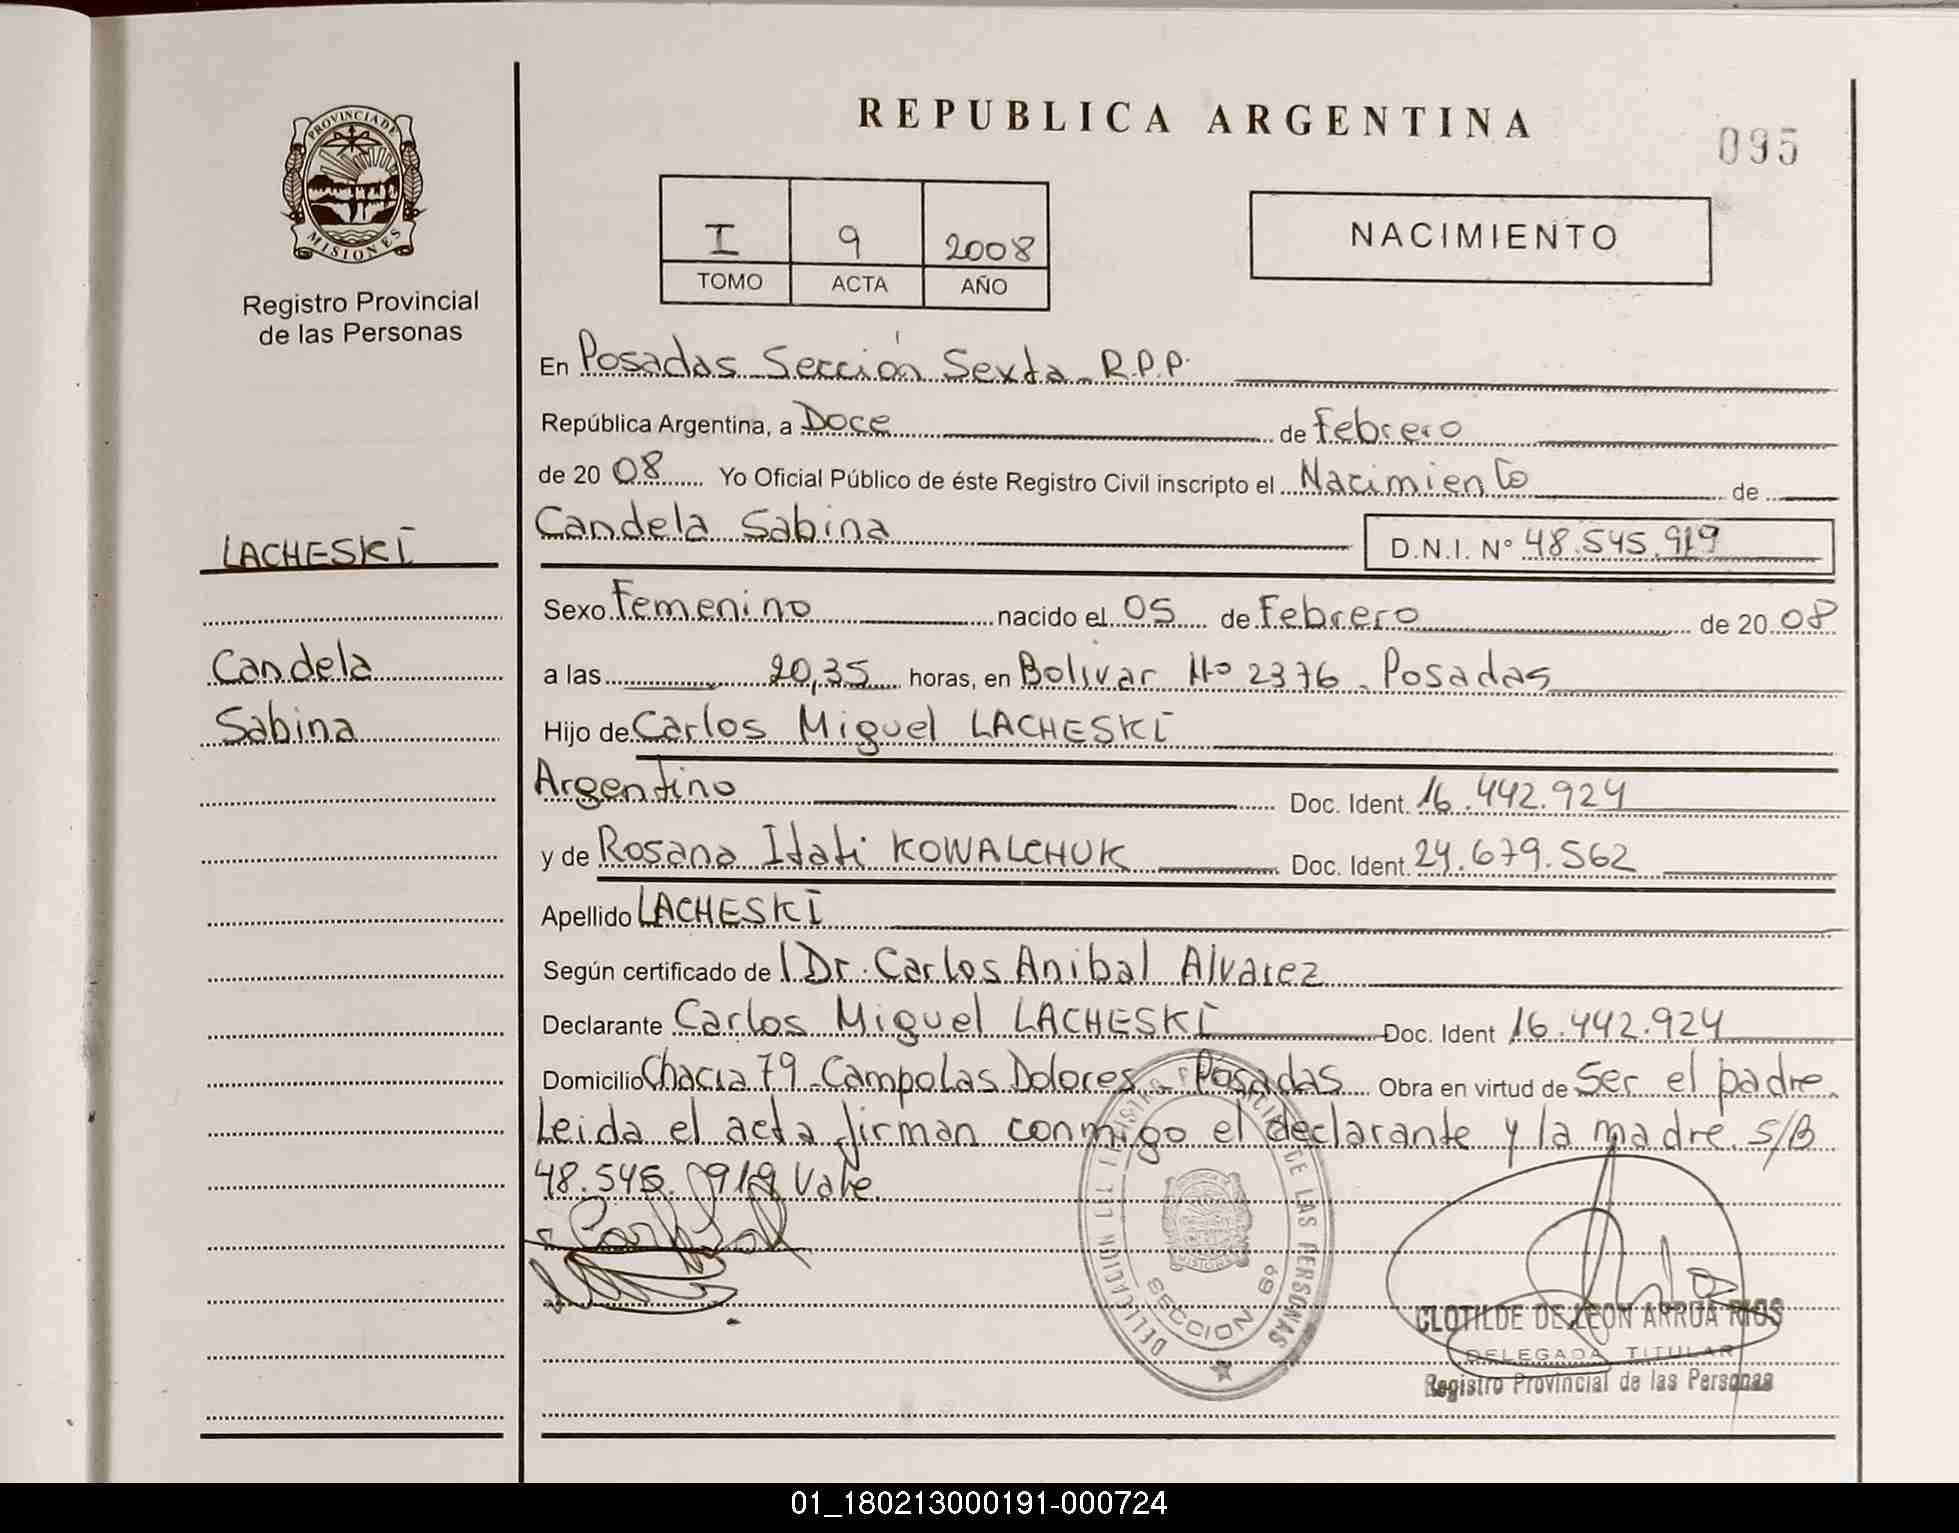 REPUBLICA ARGENTINA
095
PROVINCIA DE
MISIONES
Registro Provincial
de las Personas
I 9 2008
TOMO ACTA AÑO
NACIMIENTO
En Posadas Sección Sexta R.P.P.
República Argentina, a Doce de Febrero
de 20 08 Yo Oficial Público de éste Registro Civil inscripto el Nacimiento de
LACHESKI
Candela Sabina D.N.I. Nº 48.545.919
Sexo Femenino nacido el 05 de Febrero de 20 08
Candela
a las 20,35 horas, en Bolivar Nº 2376. Posadas
Sabina
Hijo de Carlos Miguel LACHESKI
Argentino Doc. Ident. 16.442.924
y de Rosana Itati KOWALCHUK Doc. Ident. 24.679.562
Apellido LACHESKI
Según certificado de l Dr. Carlos Anibal Alvarez
Declarante Carlos Miguel LACHESKI Doc. Ident 16.442.924
Domicilio Chacra 79 - Campo Las Dolores - Posadas Obra en virtud de Ser el padre.
Leida el acta firman conmigo el declarante y la madre. S/B
48.545.919 Vale.
DELEGACION DEL REGISTRO PROVINCIAL DE LAS PERSONAS
SECCION 6ª
CLOTILDE DE LEON ARRUA RIOS
DELEGADA TITULAR
Registro Provincial de las Personas
01_180213000191-000724